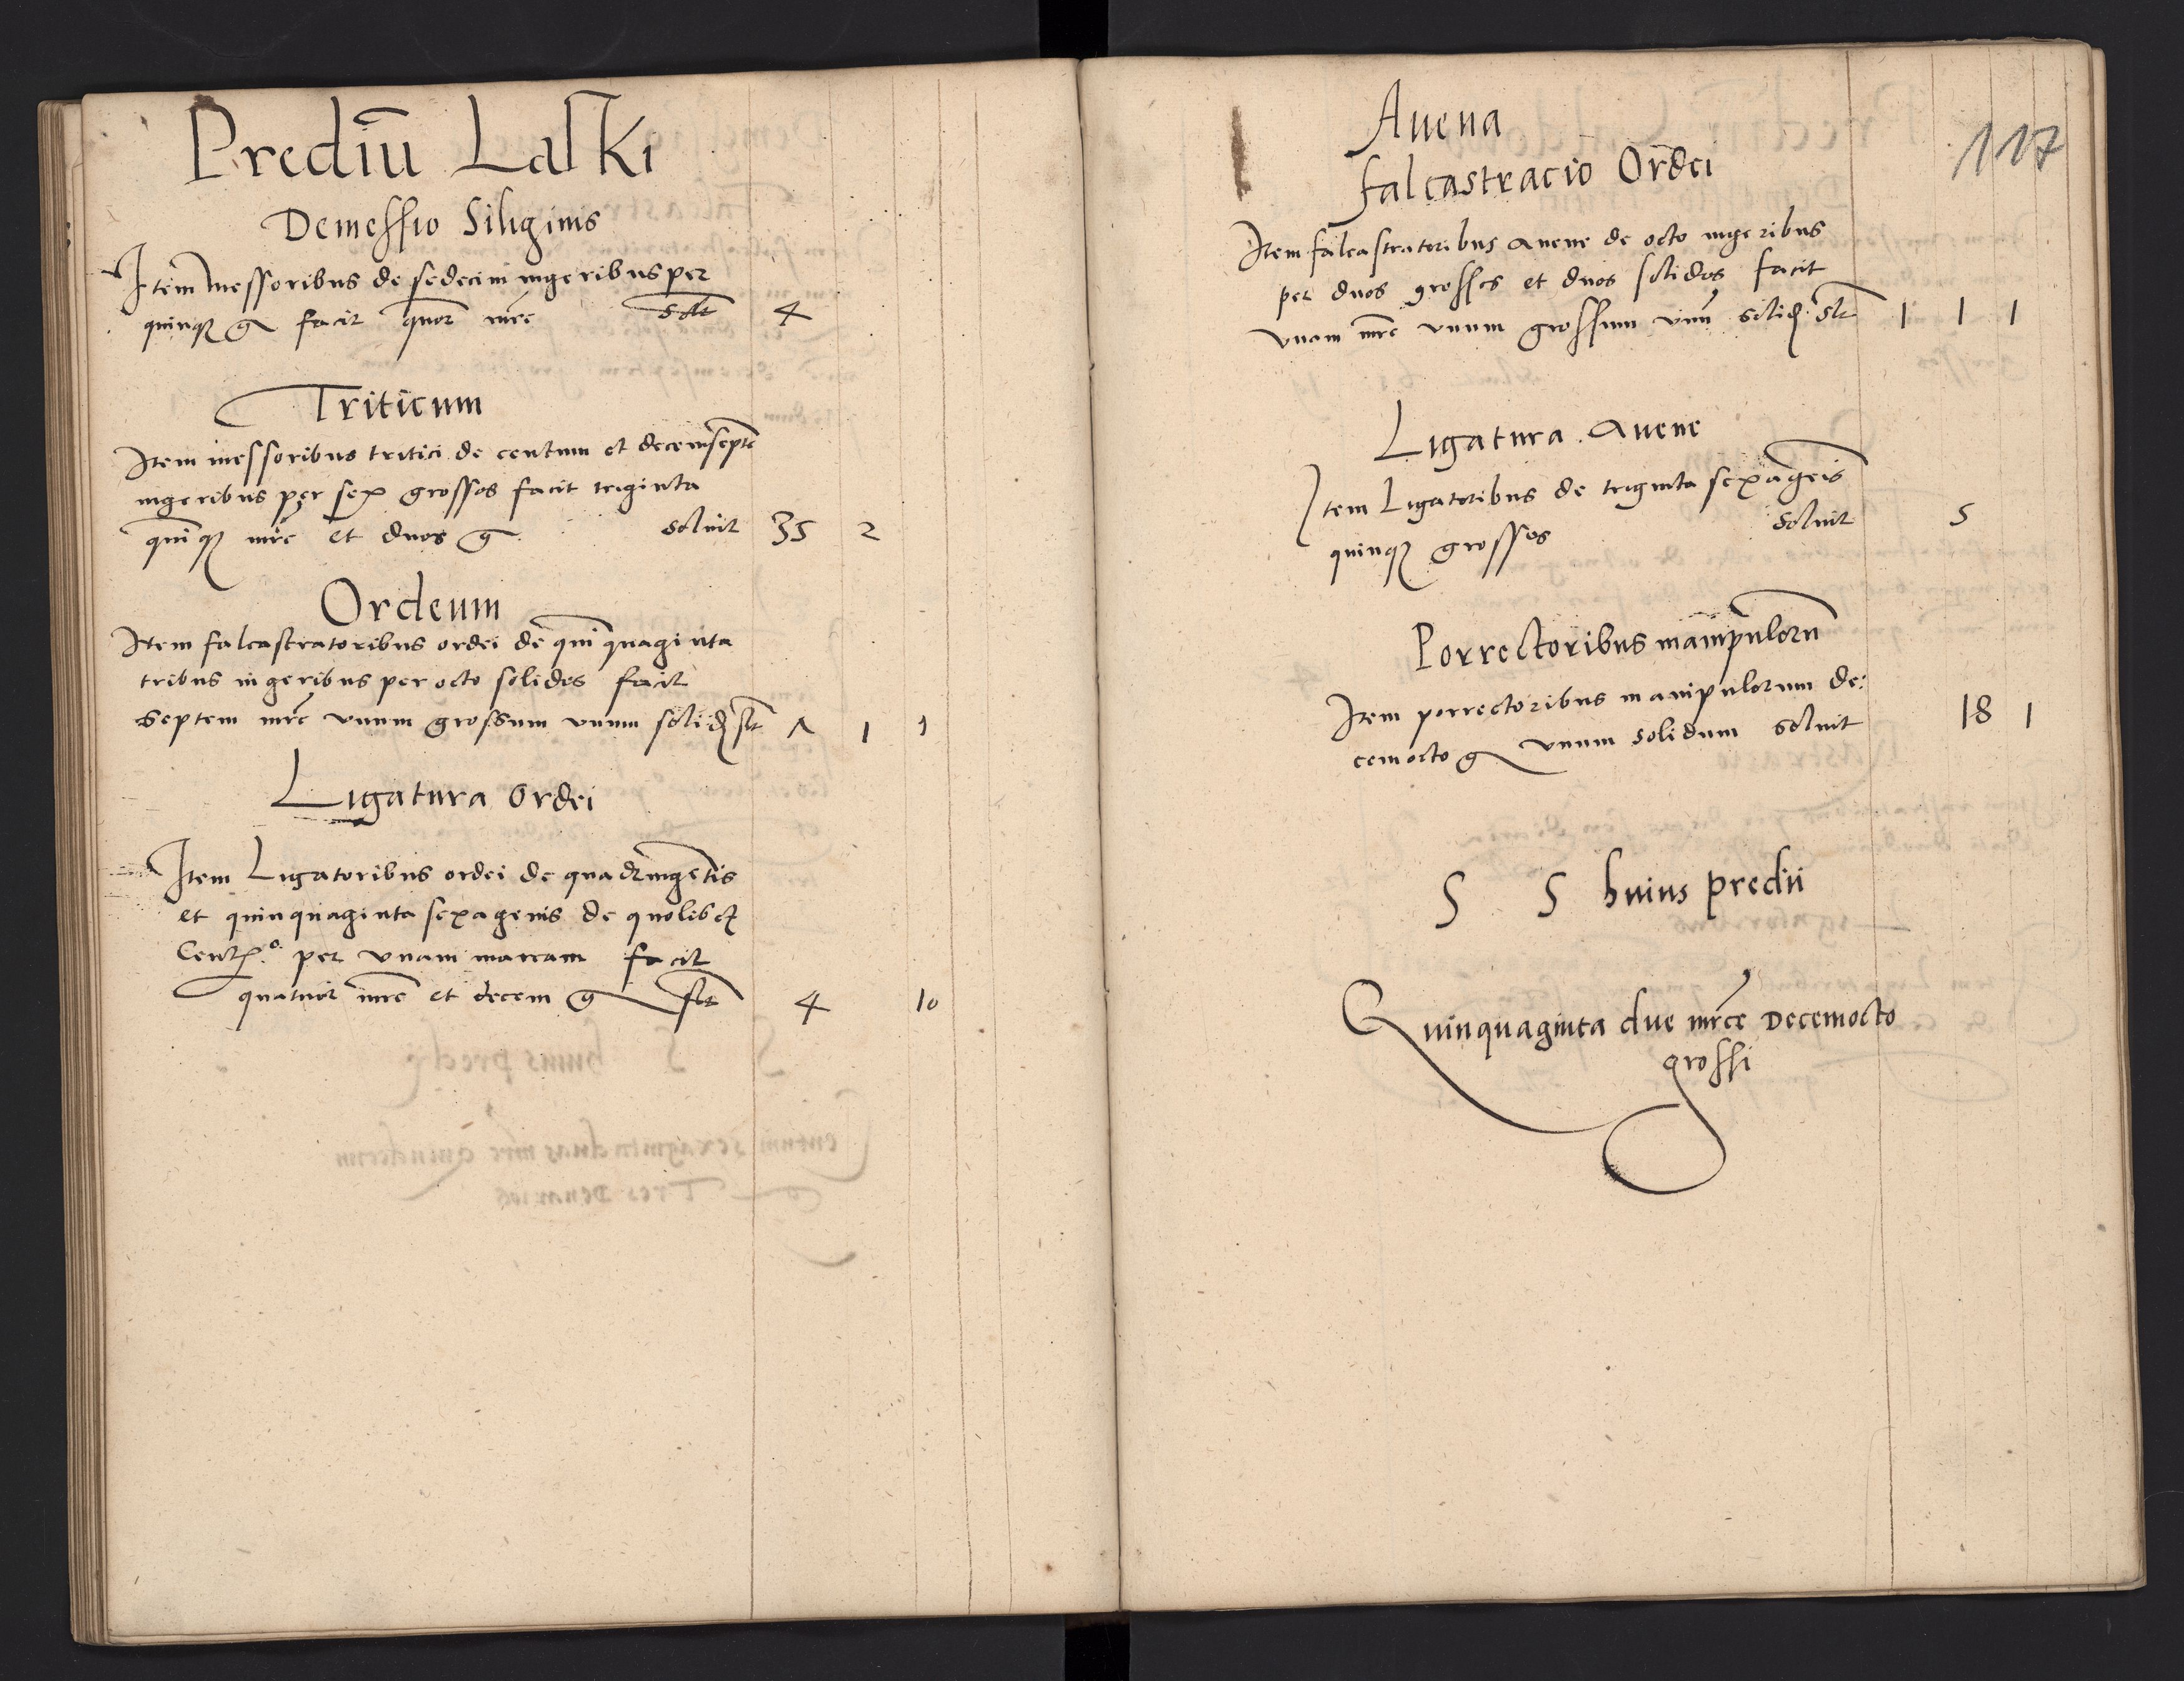 Prediū Lalki
Demessio Siliginis
Item messoribus de sedecim iugeribus per
quinqꝫ g facit quor mrc solt 4
Triticum
Item messoribus tritici de centum et decemsepte
iugeribus per sex grossos facit triginta
quinqꝫ mrc et duos g soluit 35 2
Ordeum
Item falcastratoribus ordei de quinquaginta
tribus iugeribus per octo solidos facit
septem mrc vnum grossum vnum solid slt 7 1 1
Ligatura Ordei
Item Ligatoribus ordei de quadringetis
et quinquaginta sexagenis de quolibet
Cento per vnam marcam facit
quatuor mrc et decem g slt 4 10
117
Auena
falcastracio Ordei
Item falcastratoribus auene de octo iugeribus
per duos grossos et duos solidos facit
vnam mrc vnum grossum vnū solid slt 1 1 1
Ligatura Auene
Item Ligatoribus de triginta sexageis
quinqꝫ grossos soluit 5
Porrectoribus manipulorū
Item porrectoribus manipulorum de:
cemocto g vnum solidum soluit 18 1
S S huius predii
Quinquaginta due mrce Decemocto
grossi